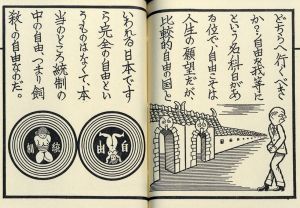 どちらへ行くべき
か？自由を我等に
という名科白があ
る位で、自由こそは
人生の願望だが、
比較的自由の国と
いわれる日本です
ら完全の自由とい
うものはなくて、本
当のところ統制の
中の自由、つまり飼
殺しの自由なのだ。
自由